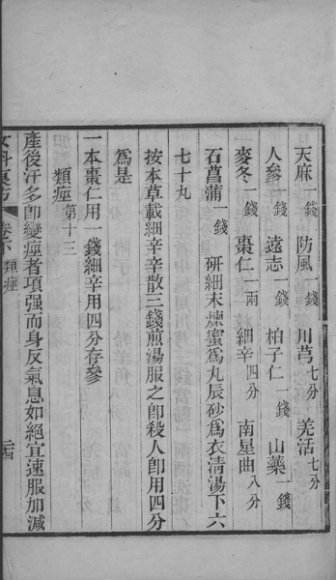 天麻一錢　防風一錢　川芎七分　羌活七分
人參一錢　遠志一錢　柏子仁一錢　山藥一錢
麥冬一錢　棗仁一兩　細辛四分　南星曲八分
石菖蒲一錢　研細末煉蜜為丸辰砂為衣清湯下六
七十丸
按本草載細辛辛散三錢煎湯服之卽殺人卽用四分
為是
一本棗仁用一錢細辛用四分存參
類痙第十三
產後汗多卽變痙者項强而身反氣息如絕宜速服加減
女科良方　卷下　類痙